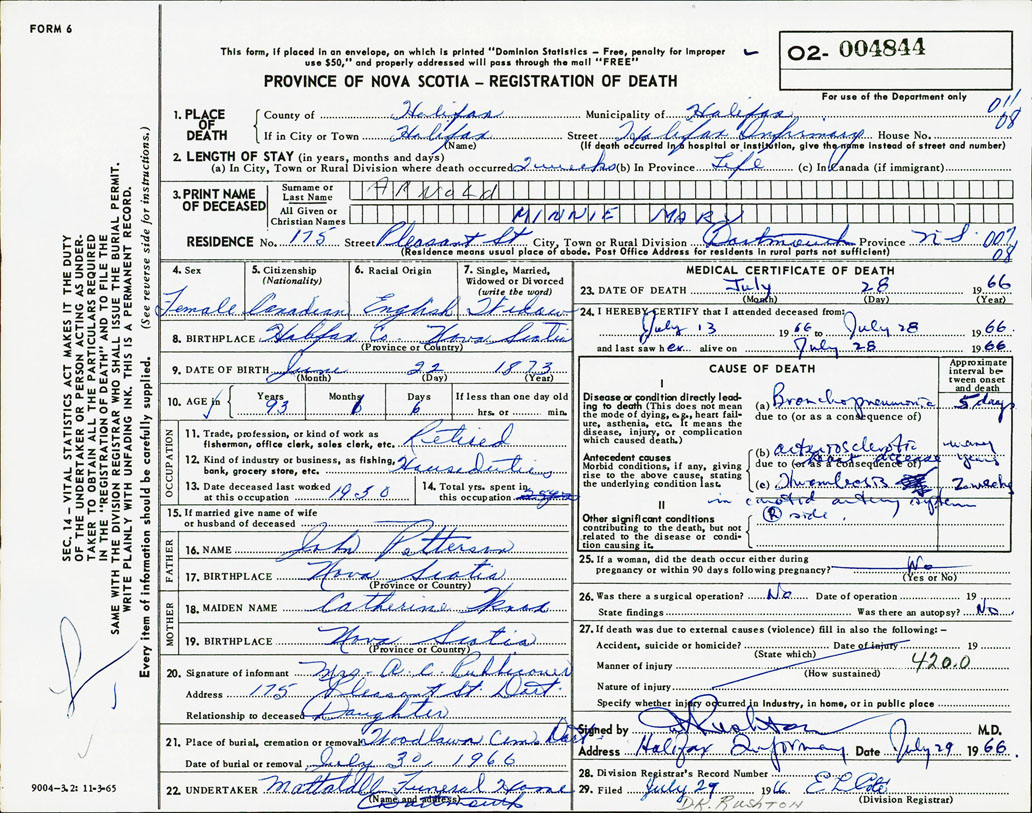 FORM 6
This form, if placed in an envelope, on which is printed "Dominion Statistics – Free, penalty for improper
use $50," and properly addressed will pass through the mail "FREE"
PROVINCE OF NOVA SCOTIA – REGISTRATION OF DEATH
O2- 004844
For use of the Department only
011
08
1. PLACE OF DEATH
County of Halifax Municipality of Halifax
If in City or Town Halifax Street Halifax Infirmary House No.
(Name) (If death occurred in a hospital or institution, give the name instead of street and number)
2. LENGTH OF STAY (in years, months and days)
(a) In City, Town or Rural Division where death occurred 2 weeks (b) In Province Life (c) In Canada (if immigrant)
3. PRINT NAME OF DECEASED
Surname or Last Name ARNOLD
All Given or Christian Names MINNIE MARY
RESIDENCE No. 175 Street Pleasant St City, Town or Rural Division Dartmouth Province N.S. 007
08
(Residence means usual place of abode. Post Office Address for residents in rural parts not sufficient)
4. Sex Female
5. Citizenship (Nationality) Canadian
6. Racial Origin English
7. Single, Married, Widowed or Divorced (write the word) Widow
8. BIRTHPLACE Halifax Co. Nova Scotia
(Province or Country)
9. DATE OF BIRTH June 22 1873
(Month) (Day) (Year)
10. AGE in Years 93 Months Days 6 If less than one day old
hrs. or min.
OCCUPATION
11. Trade, profession, or kind of work as
fisherman, office clerk, sales clerk, etc. Retired
12. Kind of industry or business, as fishing,
bank, grocery store, etc. Houseduties
13. Date deceased last worked at this occupation 1950
14. Total yrs. spent in this occupation
15. If married give name of wife
or husband of deceased
FATHER
16. NAME John Patterson
17. BIRTHPLACE Nova Scotia
(Province or Country)
MOTHER
18. MAIDEN NAME Catherine
19. BIRTHPLACE Nova Scotia
(Province or Country)
20. Signature of informant Mrs. A. C.
Address 175 Pleasant St Dart.
Relationship to deceased Daughter
21. Place of burial, cremation or removal Woodlawn Cem. Dart
Date of burial or removal July 30, 1966
22. UNDERTAKER Mattatall Funeral Home
(Name and address) Dartmouth
MEDICAL CERTIFICATE OF DEATH
23. DATE OF DEATH July 28 1966
(Month) (Day) (Year)
24. I HEREBY CERTIFY that I attended deceased from:
July 13 1966 to July 28 1966
and last saw her alive on July 28 1966
CAUSE OF DEATH
Approximate interval between onset and death
I
Disease or condition directly leading to death (This does not mean the mode of dying, e.g., heart failure, asthenia, etc. It means the disease, injury, or complication which caused death.)
(a) Bronchopneumonia 5 days
due to (or as a consequence of)
Antecedent causes
Morbid conditions, if any, giving rise to the above cause, stating the underlying condition last.
(b) arteriosclerotic heart disease many years
due to (or as a consequence of)
(c) Thrombosis 2 weeks
in carotid artery system
(R) side.
II
Other significant conditions
contributing to the death, but not related to the disease or condition causing it.
25. If a woman, did the death occur either during
pregnancy or within 90 days following pregnancy? No
(Yes or No)
26. Was there a surgical operation? No Date of operation 19
State findings Was there an autopsy? No
27. If death was due to external causes (violence) fill in also the following:–
Accident, suicide or homicide? Date of injury 19
(State which)
Manner of injury 420.0
(How sustained)
Nature of injury
Specify whether injury occurred in industry, in home, or in public place
Signed by Rushton M.D.
Address Halifax Infirmary Date July 29 1966
28. Division Registrar's Record Number
29. Filed July 29 1966
(Division Registrar)
DR. RUSHTON
SEC. 14 – VITAL STATISTICS ACT MAKES IT THE DUTY
OF THE UNDERTAKER OR PERSON ACTING AS UNDER-
TAKER TO OBTAIN ALL THE PARTICULARS REQUIRED
IN THE "REGISTRATION OF DEATH" AND TO FILE THE
SAME WITH THE DIVISION REGISTRAR WHO SHALL ISSUE THE BURIAL PERMIT.
WRITE PLAINLY WITH UNFADING INK. THIS IS A PERMANENT RECORD.
Every item of information should be carefully supplied. (See reverse side for instructions.)
9004-3.2: 11-3-65